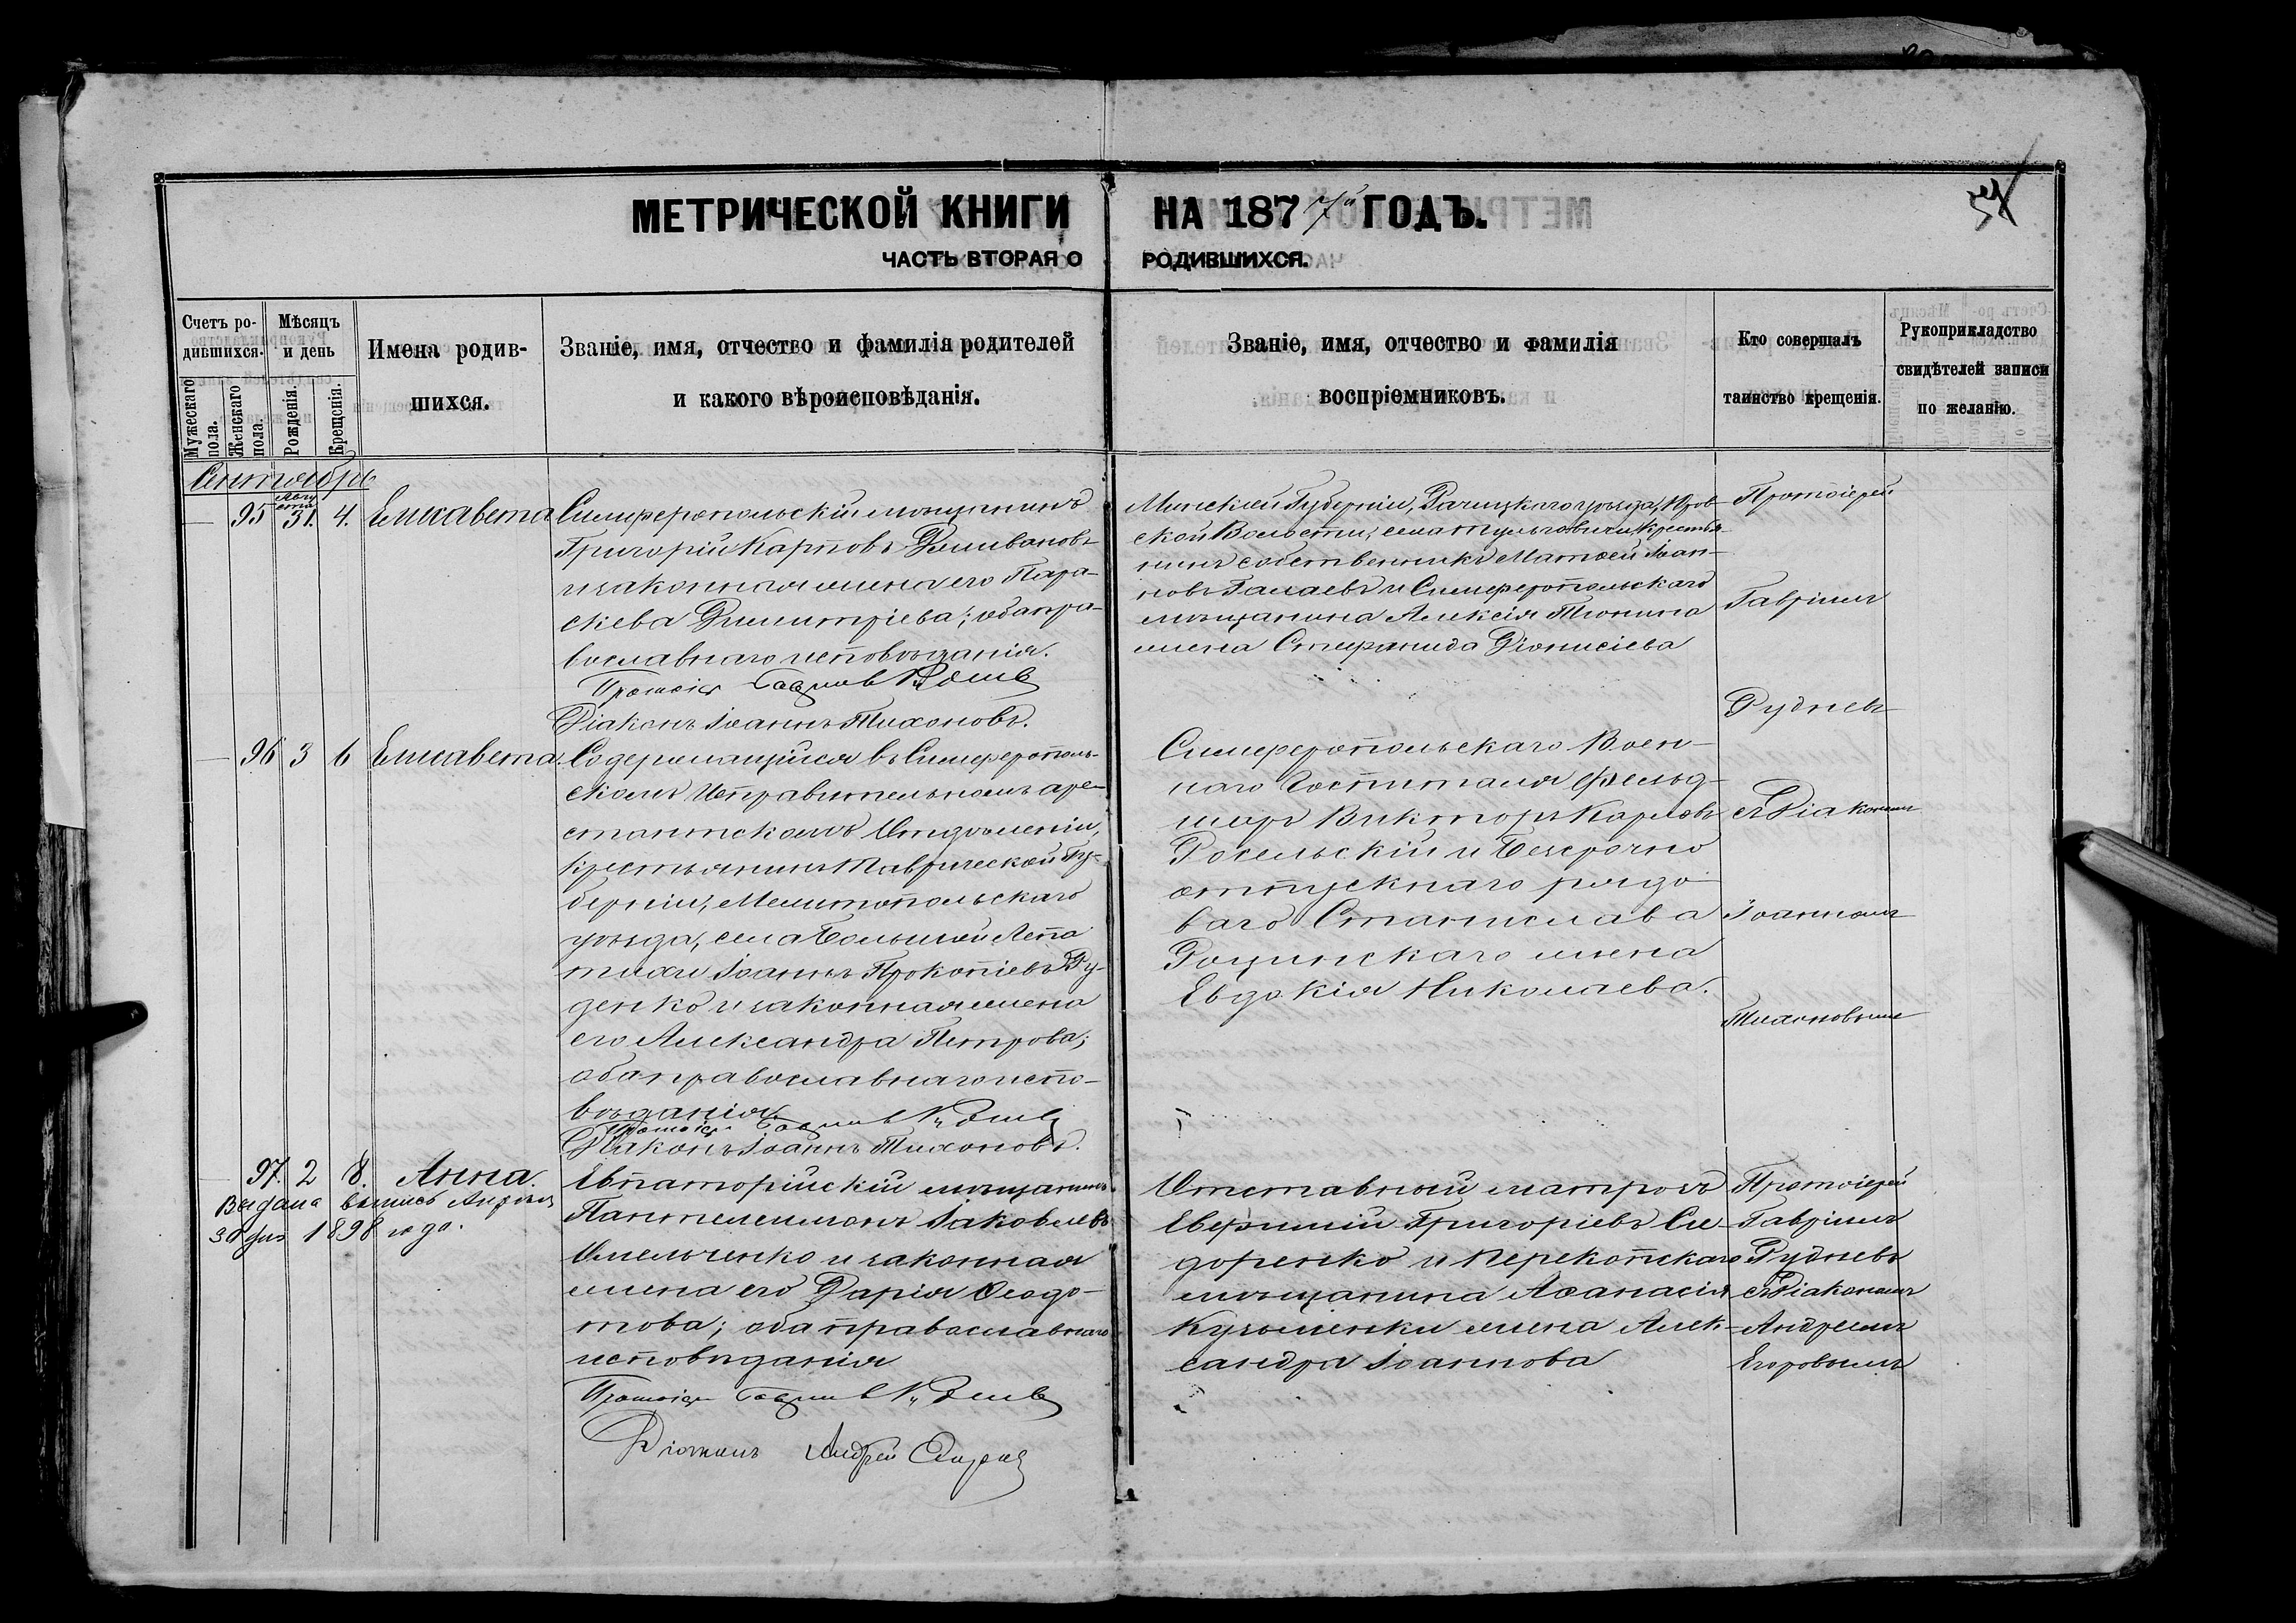 МЕТРИЧЕСКОЙ КНИГИ НА 1877й ГОДЪ.
ЧАСТЬ ВТОРАЯ О РОДИВШИХСЯ.
Счетъ ро-
дившихся.
Мужескаго пола.
Женскаго пола.
Мѣсяцъ
и день
Рожденія.
Крещенія.
Имена родив-
шихся.
Званіе, имя, отчество и фамилія родителей
и какого вѣроисповѣданія.
Званіе, имя, отчество и фамилія
воспріемниковъ.
Кто совершалъ
таинство крещенія.
Рукоприкладство
свидѣтелей записи
по желанію.
Сентябрь
95 Августа 31. 4. Елисавета
Симферопольскій мѣщанинъ
Григорій Карповъ
и законная жена его Пара-
скева Димитріева; оба пра-
вославнаго исповѣданія.
Діаконъ Іоаннъ Тихоновъ.
Минской Губерніи, Рачицкаго уѣзда, Юров-
ской Волости, села Тульговичи, крестья-
нинъ собственникъ Матѳей Іоан-
новъ Галаевъ и Симферопольскаго
мѣщанина Алексія Тюнина
жена Стефанида Діонисіева
Протоіерей
Гавріилъ
Рудневъ
съ Діакономъ
Іоанномъ
Тихоновымъ
96 3 6 Елисавета.
Содержащійся въ Симферополь-
скомъ Исправительномъ аре-
стантскомъ Отдѣленіи,
крестьянинъ Таврической Гу-
берніи, Мелитопольскаго
уѣзда, села Большой Лепа
тихи Іоаннъ Прокопіевъ Ру-
денко и законная жена
его Александра Петрова;
оба православнаго испо-
вѣданія.
Діаконъ Іоаннъ Тихоновъ.
Симферопольскаго Воен-
наго Госпиталя фельд-
шеръ Викторъ Карловъ
Росельскій и безсрочно
отпускнаго рядо
ваго Станислава
Рощинскаго жена
Евдокія Николаева.
97. 2 8. Анна.
Выдана выпись Апрѣля
30 дня 1898 года.
Евпаторійскій мѣщанинъ
Пантелеимонъ Іаковлевъ
Омельченко и законная
жена его Дарія Ѳеодо-
това; оба православнаго
исповѣданія
Діаконъ Андрей
Отставной матросъ
Евфимій Григоріевъ Си-
доренко и Перекопскаго
мѣщанина Аѳанасія
Кузьменки жена Алек-
сандра Іоаннова
Протоіерей
Гавріилъ
Рудневъ
съ Діакономъ
Андреемъ
Егоровымъ